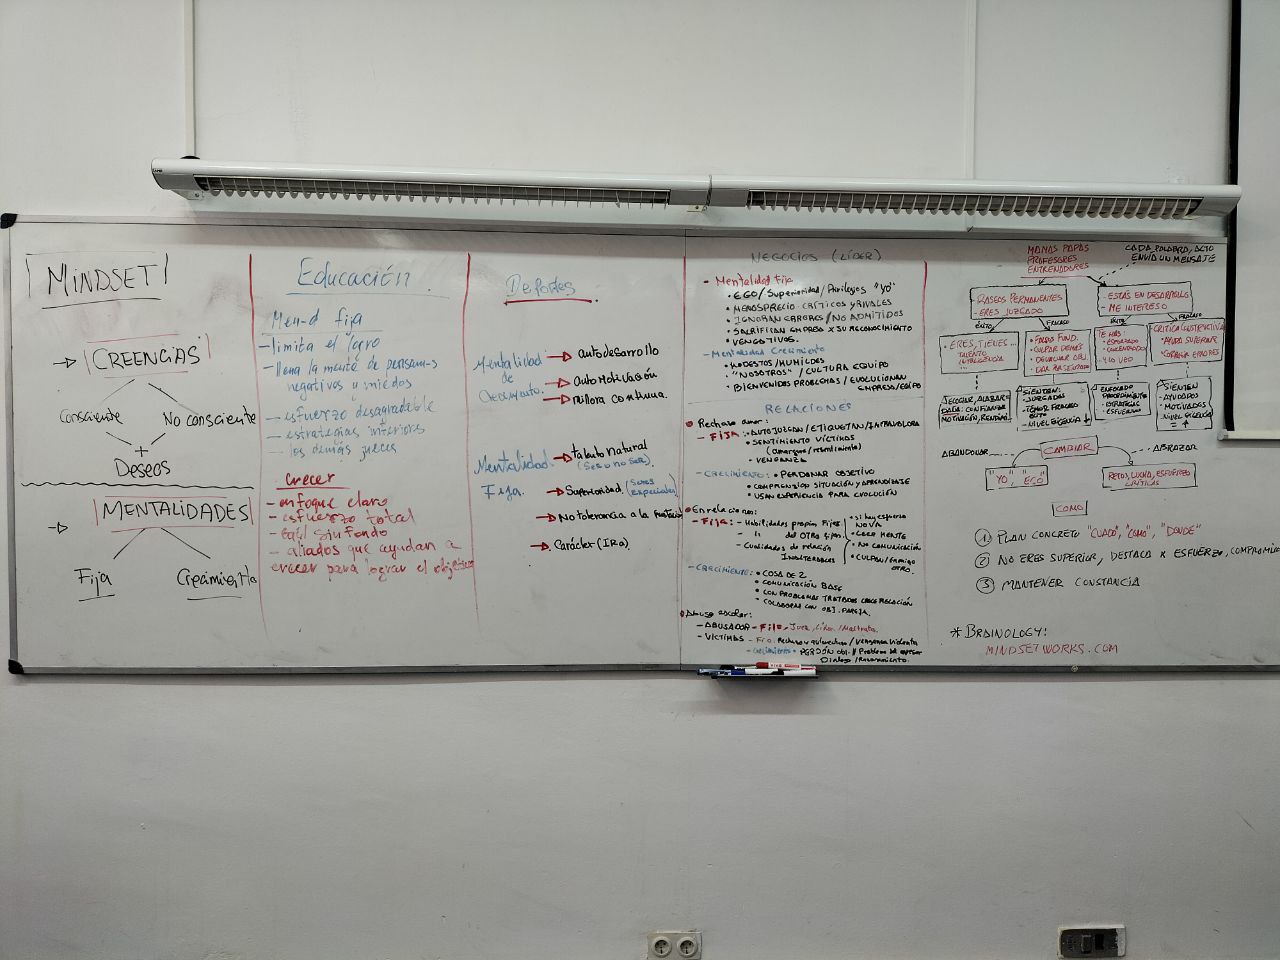 MINDSET
CREENCIAS
Consciente
No consciente
+
Deseos
MENTALIDADES
Fija
Crecimiento
Educación
Men-d fija
- limita el logro
- llena la mente de pensam-s
negativos y miedos
- esfuerzo desagradable
- estrategias inferiores
- los demás jueces
crecer
- enfoque claro
- esfuerzo total
- sin fondo
- aliados que ayudan a
crecer para lograr el objetivo
Deportes
Mentalidad
de
Crecimiento.
autodesarrollo
autoMotivación
mejora continua.
Mentalidad
Fija.
Talento natural
(Ses o no Ser)
Superioridad (Seres
especiales)
No tolerancia a la
Carácter (IRA)
NEGOCIOS (LÍDER)
- Mentalidad Fija
• EGO/Superioridad/Privilegios "yo"
• MENOSPRECIO CRÍTICOS Y RIVALES
• IGNORAN ERRORES/NO ADMITIDOS
• SACRIFICAN EMPRESA X SU RECONOCIMIENTO
• VENGATIVOS.
- Mentalidad Crecimiento
• MODESTOS/HUMILDES
• "NOSOTROS" / CULTURA EQUIPO
• BIENVENIDOS PROBLEMAS / EVOLUCIONAN
EMPRESA/EQUIPO
RELACIONES
Rechazo amor:
- FIJA: • AUTOJUZGAN / ETIQUETAN / INTRAVALORA
• SENTIMIENTO VÍCTIMAS
(amargura / resentimiento)
• VENGANZA
- CRECIMIENTO: • PERDONAR OBJETIVO
• COMPRENDEN SITUACIÓN Y APRENDIZAJE
• USAN EXPERIENCIA PARA EVOLUCIÓN
En relaciones:
- FIJA: - Habilidades propias Fijas
- " del OTRO fijas
- Cualidades de relación
INALTERABLES
• si hay esfuerzo
NO VA
• LEER MENTE
• NO COMUNICACIÓN
• CULPAN/ENEMIGO
OTRO.
- CRECIMIENTO: • COSA DE 2
• COMUNICACIÓN BASE
• CON PROBLEMAS TRATADOS CRECE RELACIÓN
• COLABORAR CON OBJ. PAREJA.
Abuso escolar:
- ABUSADOR - Fija - Juez, Líder / Maltrato.
- VÍCTIMAS - Fija: Rechazo / venganza violenta
- Crecimiento • PERDÓN obj. // Problema del agresor
Dialogo / Razonamiento.
MAMÁS PAPAS
PROFESORES
ENTRENADORES
CADA PALABRA, ACTO
ENVÍA UN MENSAJE
- RASGOS PERMANENTES
- ERES JUZGADO
- ESTÁS EN DESARROLLO
- ME INTERESO
ÉXITO
FRACASO
ÉXITO
FRACASO
• ERES, TIENES...
TALENTO
INTELIGENCIA...
• FALLOS FUND.
• CULPAR DEMÁS
• DEVALUAR OBJ.
TE HAS:
• ESFORZADO
• CONCENTRADO
• YO VEO
CRÍTICA CONSTRUCTIVA
• AYUDA SUPERAR
• CORREGIR ERRORES
SIENTEN:
- JUZGADOS
- TEMOR FRACASO
- NIVEL EXIGENCIA ↓
• ENFOCADO
PROCEDIMIENTO
- ESTRATEGIAS
- ESFUERZO
• SIENTEN
- AYUDADOS
- MOTIVADOS
- NIVEL EXIGENCIA
= ↑
ABANDONAR
CAMBIAR
ABRAZAR
"YO", "EGO"
RETOS, LUCHA, ESFUERZO
CRÍTICAS
COMO
1 PLAN CONCRETO "CUANDO", "COMO", "DONDE"
2 NO ERES SUPERIOR, DESTACA X ESFUERZO, COMPROMISO
3 MANTENER CONSTANCIA
* BRAINOLOGY:
MINDSETWORKS.COM